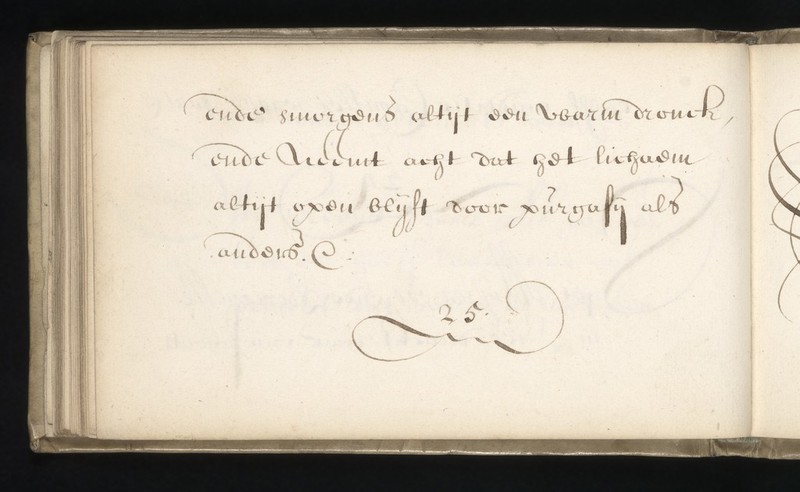 ende smorgens altijt een warm dronck,
ende Neemt acht dat het lichaem
altijt open blijft door purgasij als
anders. &
25.